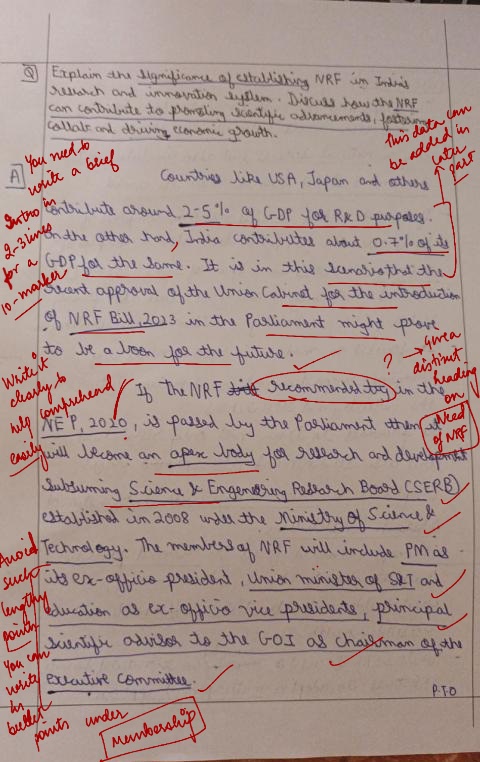 Q Explain the significance of establishing NRF in India's
research and innovation system. Discuss how the NRF
can contribute to promoting scientific advancements, fostering
collab and driving economic growth.
This data can
be added in
later
part
You need to
write a brief
Intro in
2-3 lines
for a
10-marker
A Countries like USA, Japan and others
contribute around 2-5% of GDP for R&D purposes.
On the other hand, India contributes about 0.7% of its
GDP for the same. It is in this scenario that the
recent approval of the Union Cabinet for the introduction
of NRF Bill, 2023 in the Parliament might prove
to be a boon for the future.
? → Give a
distinct
heading
on
Need
of NRF
Write it
clearly to
help comprehend
easily
If the NRF recommended by in the
NEP, 2020, is passed by the Parliament then it
will become an apex body for research and development
subsuming Science & Engeneering Research Board (SERB)
established in 2008 under the Ministry of Science &
Technology. The members of NRF will include PM as
its ex-officio president, Union minister of S&T and
education as ex-officio vice presidents, principal
scientific advisor to the GOI as chairman of the
executive committee.
P.T.O
Avoid
such
lengthy
points
You can
write in
bullet
points under
Membership